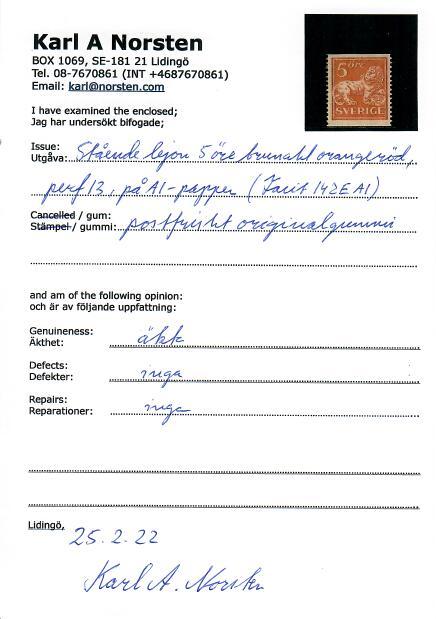 Karl A Norsten
BOX 1069, SE-181 21 Lidingö
Tel. 08-7670861 (INT +4687670861)
Email: karl@norsten.com
5 ÖRE
SVERIGE
I have examined the enclosed;
Jag har undersökt bifogade;
Issue:
Utgåva: Stående lejon 5 öre brunakt orangeröd,
perf 13, på A1-papper (Facit 142E A1)
Cancelled / gum:
Stämpel / gummi: postfriskt originalgummi
and am of the following opinion:
och är av följande uppfattning:
Genuineness:
Äkthet: äkk
Defects:
Defekter: inga
Repairs:
Reparationer: inga
Lidingö,
25.2.22
Karl A. Norsten